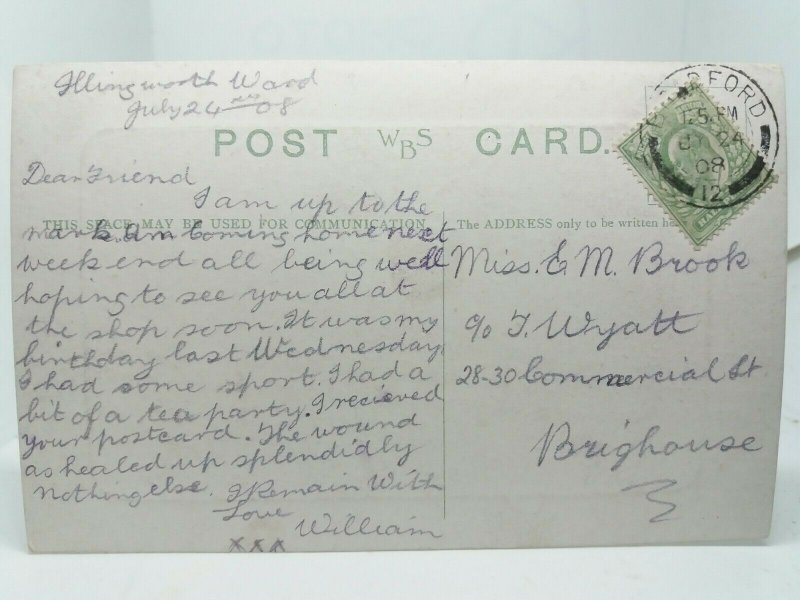 Illingworth Ward
July 24th 08
POST WBS CARD.
BRADFORD
5. PM
08
12
Dear Friend
I am up to the
THIS SPACE MAY BE USED FOR COMMUNICATION
mark. am Coming home next
week end all being well
hoping to see you all at
the shop soon. It was my
birthday last Wednesday.
I had some sport. I had a
bit of a tea party. I recieved
your postcard. The wound
as healed up splendidly
Nothing else. I Remain With
Love
William
xxx
The ADDRESS only to be written he
Miss. E M. Brook
c/o T. Wyatt
28-30 Commercial St
Brighouse